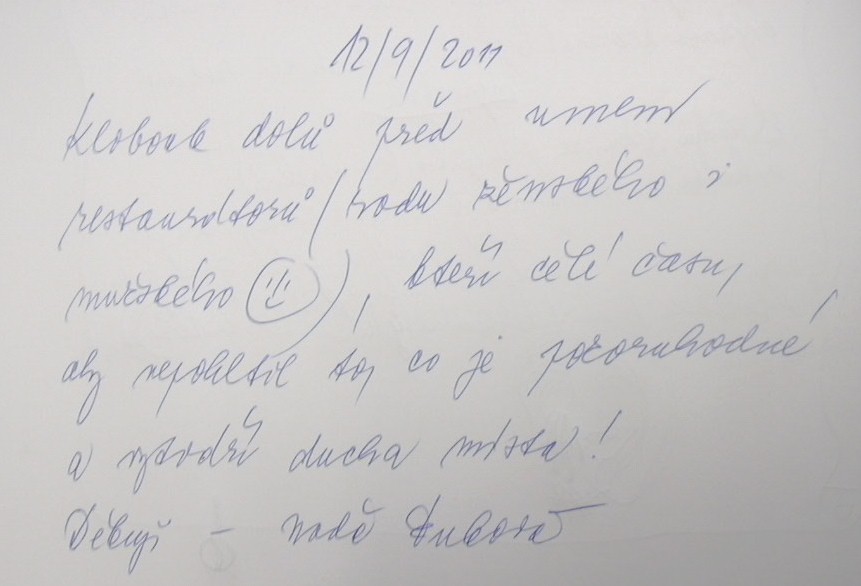 12/9/2011
Klobouk dolů před umem
restaurátorů (rodu ženského i
mužského ☺), kteří čelí času,
aby nepohltil to, co je pozoruhodné
a vytváří ducha místa!
Děkuji –